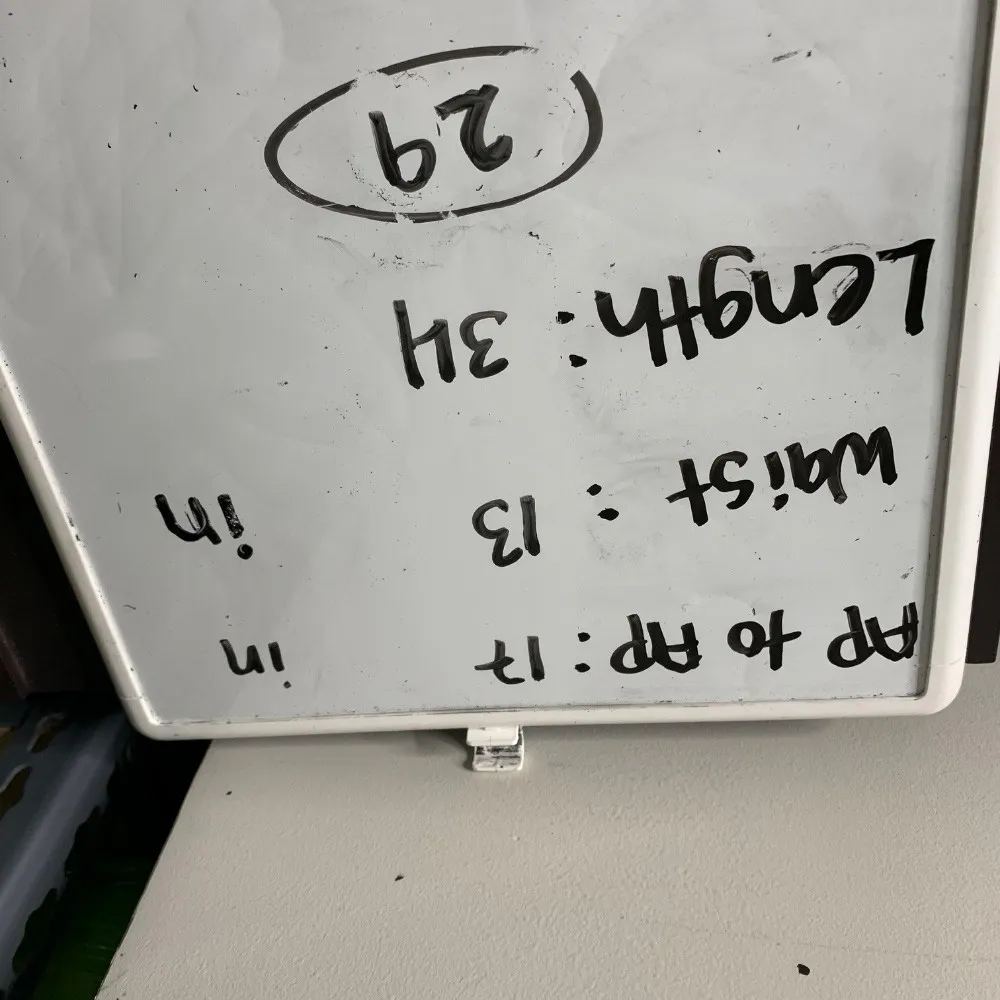 AP to AP: 17 in
Waist : 13 in
Length : 34
29